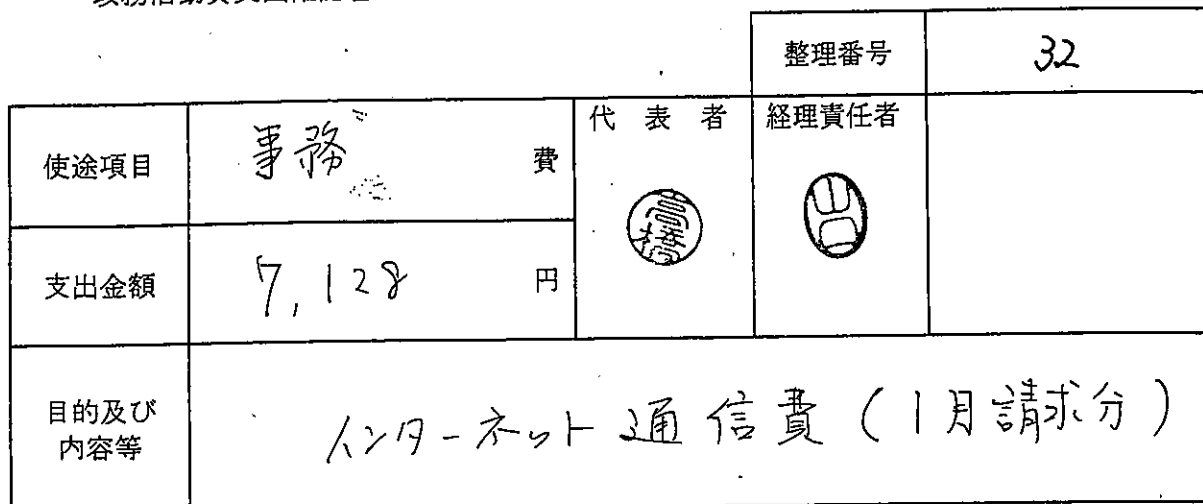 整理番号 32
使途項目 事務 費 代表者 経理責任者
高橋
支出金額 7,128 円
目的及び
内容等
インターネット通信費(1月請求分)